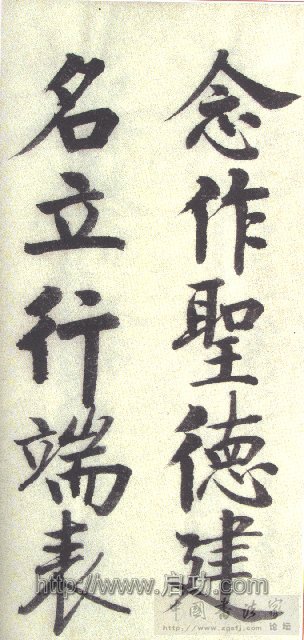 念作聖德建
名立行端表
http://www.启功.com
中國书法家
论坛
http://www.zgsfj.com